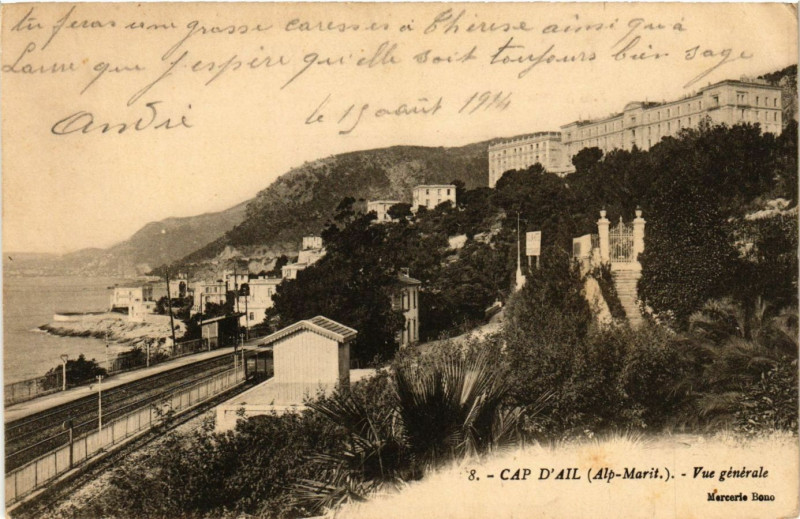 tu feras une grosse caresses à Thérèse ainsi qu'à
Laure que j'espère qu'elle soit toujours bien sage
André
le 15 août 1914
8. - CAP D'AIL (Alp-Marit.). - Vue générale
Mercerie Bono